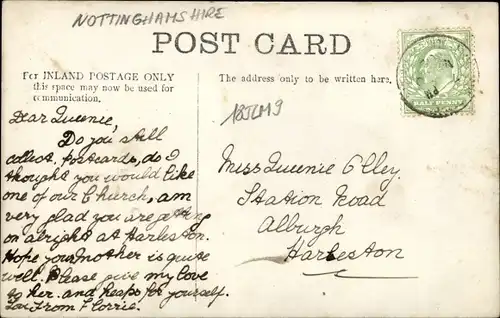 NOTTINGHAMSHIRE
POST CARD
For INLAND POSTAGE ONLY
this space may now be used for
communication.
The address only to be written here.
HALF PENNY
Dear Queenie,
Do you still
collect postcards, do I
thought you would like
one of our Church, am
very glad you are getting
on alright at Harleston.
Hope your mother is quite
well. Please give my love
to her. and heaps for yourself.
From Florrie.
Miss Queenie Olley.
Station Road
Alburgh
Harleston